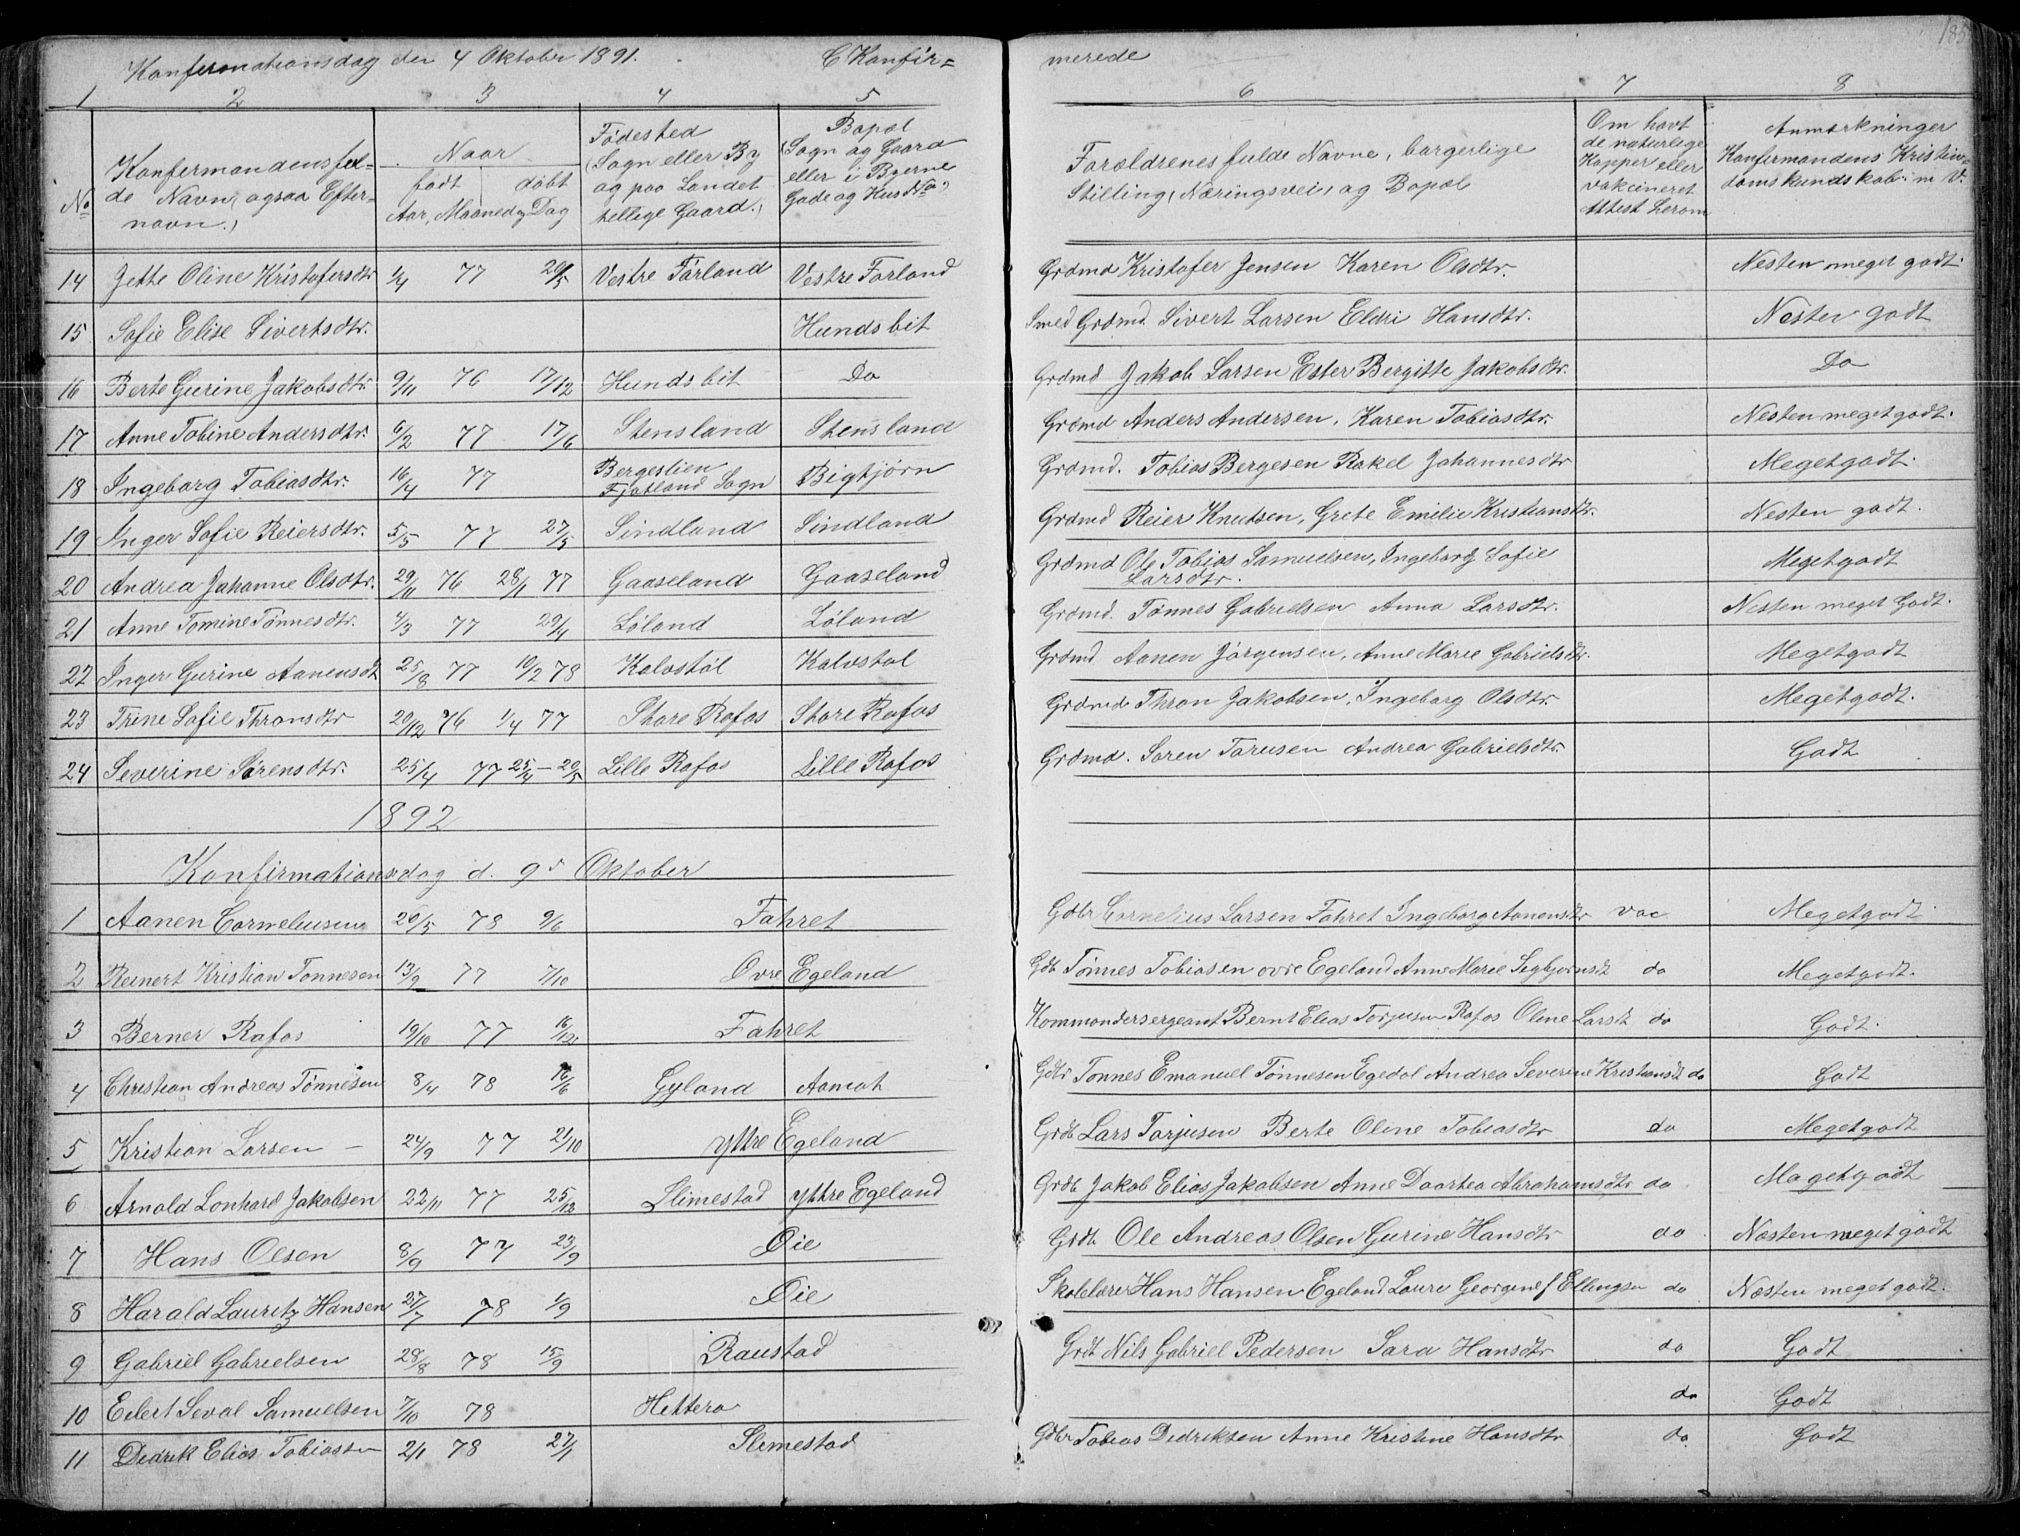 185
Konfermationsdag den 4 Oktober 1891. C Konfir= merede
1 2 3 4 5 6 7 8
No Konfermandens ful= de Navn, ogsaa Efter= navn.) Naar født døbt Aar, Maaned og Dag Fødested (Sogn eller By og paa Landet tillige Gaard.) Bopæl (Sogn og Gaard eller i Byerne Gade og Hus No) Forældrenes fulde Navne, borgerlige Stilling (Næringsvei) og Bopæl Om havt de naturlige Kopper eller vakcineret Attest herom Anmærkninger Konfermandens Kristen= doms kundskab m. V.
14 Jette Oline Kristofersdtr 1/4 77 20/5 Vestre Førland Vestre Førland Grdmd Kristofer Jensen Karen Olsdtr. Nesten meget godt.
15 Sofie Elise Sivertsdtr. Hundsbit Smed Grdmd. Sivert Larsen Eldri Hansdtr. Nesten godt
16 Berte Gurine Jakobsdtr 9/11 76 17/12 Hundsbit Do Grdmd Jakob Larsen Ester Bergitte Jakobsdtr. Do
17 Anne Tobine Andersdtr. 6/2 77 17/6 Stensland Stensland Grdmd Anders Andersen, Karen Tobiasdtr. Nesten meget godt.
18 Ingeborg Tobiasdtr. 16/4 77 Bergeslien Fjotland Sogn Bigtjørn Grdmd. Tobias Bergesen Rakel Johannesdtr Meget godt.
19 Inger Sofie Reiersdtr. 5/5 77 27/5 Sindland Sindland Grdmd Reier Knutsen, Grete Emilie Kristiansdtr. Nesten godt.
20 Andrea Johanne Olsdtr. 29/11 76 28/1 77 Gaaseland Gaaseland Grdmd Ole Tobias Samuelsen, Ingeborg Sofie Larsdtr. Meget godt
21 Anne Tomine Tønnesdtr. 4/3 77 29/4 Løland Løland Grdmd. Tønnes Gabrielsen Anna Larsdtr. Nesten meget Godt.
22 Inger Gurine Aanensdt 25/8 77 10/2 78 Kalvstøl Kalvstøl Grdmd Aanen Jørgensen, Anne Marie Gabrielsdtr. Meget godt
23 Trine Sofie Thronsdtr 20/12 76 1/4 77 Store Rafos Store Rafos Grdmd Thron Jakobsen, Ingeborg Olsdtr. Meget godt.
24 Severine Sørensdtr. 25/4 77 25/4 – 20/5 Lille Rafos Lille Rafos Grdmd. Søren Torusen Andrea Gabrielsdtr. Godt
1892
Konfirmationsdag d. 9d Oktober
1 Aanen Corneliussen 20/5 78 9/6 Fahret Gdbr Cornelius Larsen Fahret Ingeborg Aanensdtr vac Meget godt
2 Reinert Kristian Tønnesen 13/9 77 7/10 Øvre Egeland Gdb Tønnes Tobiasen øvre Egeland Anne Marie Segbjørnsdt do Meget godt.
3 Berner Rafos 19/10 77 16/12 Fahret Kommandersergeant Bernt Elias Torjusen Rafos Oline Larsdt do Godt.
4 Christian Andreas Tønnesen 8/4 78 16/6 Gyland Aamot Gdbr Tønnes Emanuel Tønnesen Egedal Andrea Severine Kristiansdt do Godt
5 Kristian Larsen – 24/9 77 21/10 Yttre Egeland Grdb Lars Torjusen Berte Oline Tobiasdtr do Meget godt
6 Arnold Lonhard Jakobsen 22/11 77 25/12 Slimestad yttre Egeland Grdb Jakob Elias Jakobsen Anne Doortea Abrahamsdtr do Meget godt
7 Hans Olsen 8/9 77 23/9 Øie Grdb Ole Andreas Olsen Gurine Hansdtr do Næsten meget godt
8 Harald Lauritz Hansen 27/7 78 1/9 Øie Skolelærer Hans Hansen Egeland Laura Georgine f Ellingsen do Næsten meget godt.
9 Gabriel Gabrielsen 28/8 78 15/9 Raustad Grdb Nils Gabriel Pedersen Sara Hansdtr do Godt
10 Eilert Seval Samuelsen 7/10 78 Hittero do Godt
11 Didrik Elias Tobiassen 2/1 78 27/1 Slimestad Gdbr Tobias Didriksen Anne Kristine Hansdtr do Godt